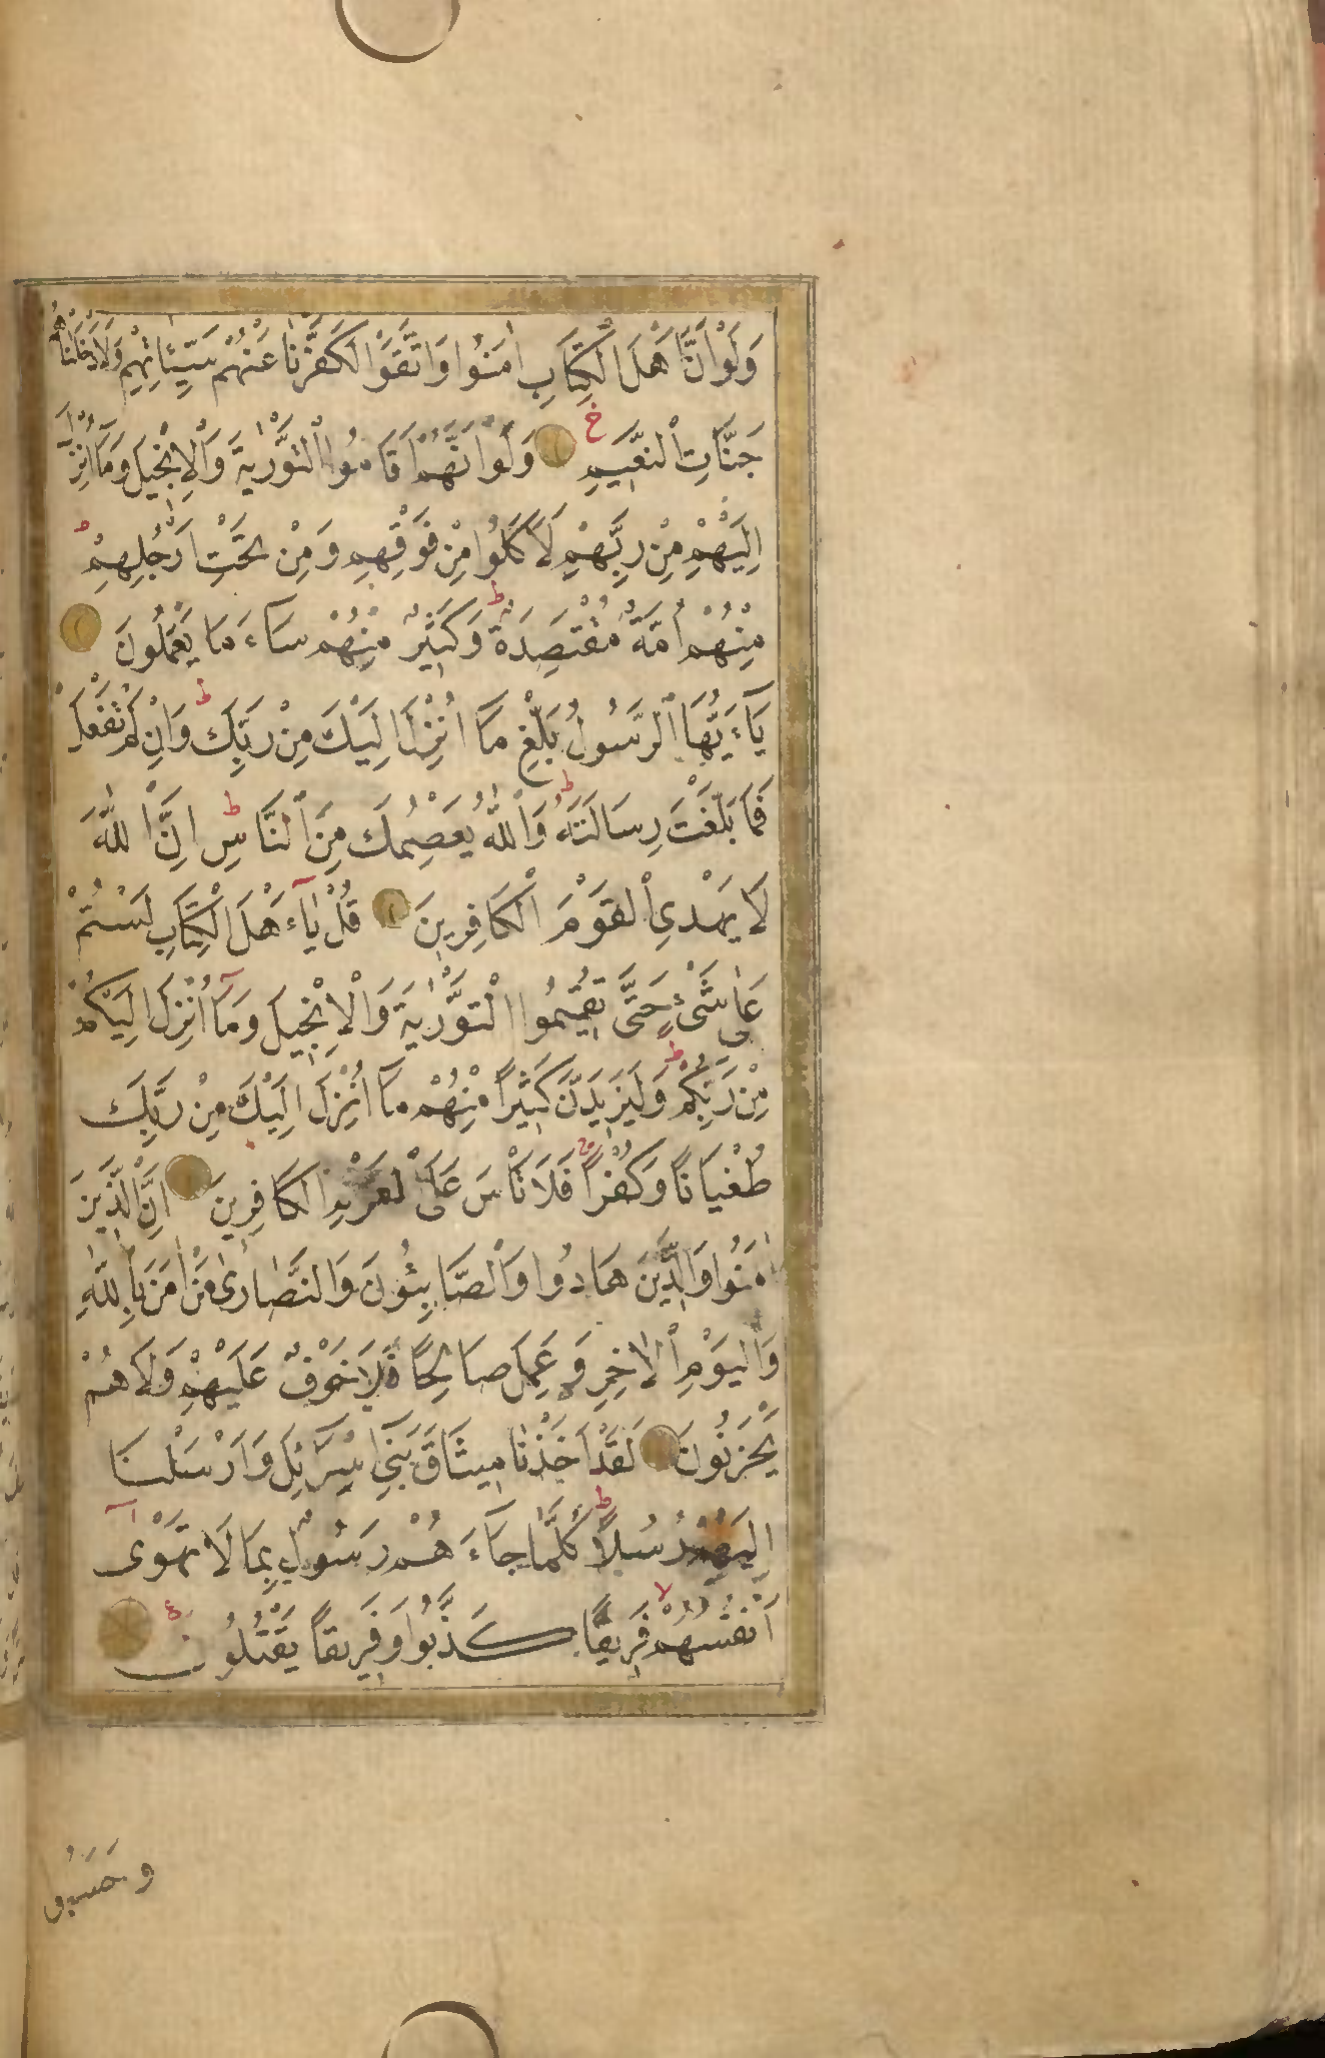 وَلَوْ اَنَّ اَهْلَ الْكِتَابِ اٰمَنُوا وَاتَّقَوْا لَكَفَّرْنَا عَنْهُمْ سَيِّئَاتِهِمْ وَلَاَدْخَلْنَاهُمْ
جَنَّاتِ النَّعِيمِ خ وَلَوْ اَنَّهُمْ اَقَامُوا التَّوْرٰيةَ وَالْاِنْجِيلَ وَمَا اُنْزِلَ
اِلَيْهِمْ مِنْ رَبِّهِمْ لَاَكَلُوا مِنْ فَوْقِهِمْ وَمِنْ تَحْتِ اَرْجُلِهِمْ ط
مِنْهُمْ اُمَّةٌ مُقْتَصِدَةٌ ط وَكَثِيرٌ مِنْهُمْ سَاءَ مَا يَعْمَلُونَ
يَآءَيُّهَا الرَّسُولُ بَلِّغْ مَا اُنْزِلَ اِلَيْكَ مِنْ رَبِّكَ ط وَاِنْ لَمْ تَفْعَلْ
فَمَا بَلَّغْتَ رِسَالَتَهُ ط وَاللّٰهُ يَعْصِمُكَ مِنَ النَّاسِ ط اِنَّ اللّٰهَ
لَا يَهْدِي الْقَوْمَ الْكَافِرِينَ قُلْ يَآءَهْلَ الْكِتَابِ لَسْتُمْ
عَلٰى شَيْءٍ حَتَّى تُقِيمُوا التَّوْرٰيةَ وَالْاِنْجِيلَ وَمَآ اُنْزِلَ اِلَيْكُمْ
مِنْ رَبِّكُمْ ط وَلَيَزِيدَنَّ كَثِيرًا مِنْهُمْ مَا اُنْزِلَ اِلَيْكَ مِنْ رَبِّكَ
طُغْيَانًا وَكُفْرًا ج فَلَا تَاْسَ عَلَى الْقَوْمِ الْكَافِرِينَ اِنَّ الَّذِينَ
اٰمَنُوا وَالَّذِينَ هَادُوا وَالصَّابِئُونَ وَالنَّصَارٰى مَنْ اٰمَنَ بِاللّٰهِ
وَالْيَوْمِ الْاٰخِرِ وَعَمِلَ صَالِحًا فَلَا خَوْفٌ عَلَيْهِمْ وَلَا هُمْ
يَحْزَنُونَ لَقَدْ اَخَذْنَا مِيثَاقَ بَنِي اِسْرَآئِلَ وَاَرْسَلْنَا
اِلَيْهِمْ رُسُلًا ط كُلَّمَا جَاءَهُمْ رَسُولٌ بِمَا لَا تَهْوٰى
اَنْفُسُهُمْ لا فَرِيقًا كَذَّبُوا وَفَرِيقًا يَقْتُلُونَ
وحَسِبُوا